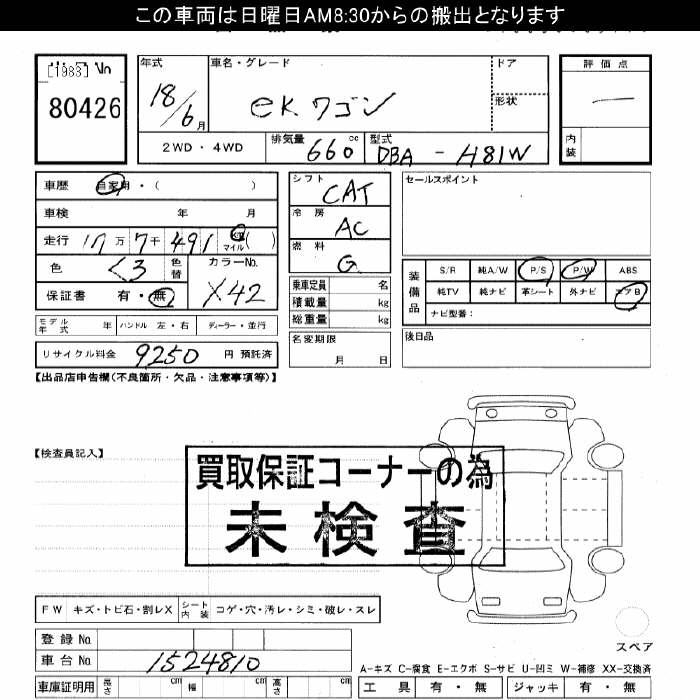 この車両は日曜日AM8:30からの搬出となります
[1983] No
80426
年式 18/6月
車名・グレード eKワゴン
ドア
形状
評価点 —
内装
2WD・4WD 排気量 660cc 型式 DBA - H81W
車歴 自家用・( )
車検 年 月
走行 17万7千491 km マイル ( )
色 くろ 色替 カラーNo. X42
保証書 有・無
シフト CAT
冷房 AC
燃料 G
乗車定員 名
積載量 kg
総重量 kg
名変期限 月 日
セールスポイント
装備品
S/R 純A/W P/S P/W ABS
純TV 純ナビ 革シート 外ナビ エアB
ナビ型番:
後日品
モデル年式 年 ハンドル 左・右 ディーラー・並行
リサイクル料金 9250 円 預託済
【出品店申告欄(不良箇所・欠品・注意事項等)】
【検査員記入】
買取保証コーナーの為
未検査
FW キズ・トビ石・割レX シート内装 コゲ・穴・汚レ・シミ・破レ・スレ
登録No.
車台No. 1524810
車庫証明用 長さ cm 幅 cm 高さ cm
スペア
A-キズ C-腐食 E-エクボ S-サビ U-凹ミ W-補修 XX-交換済
工具 有・無 ジャッキ 有・無